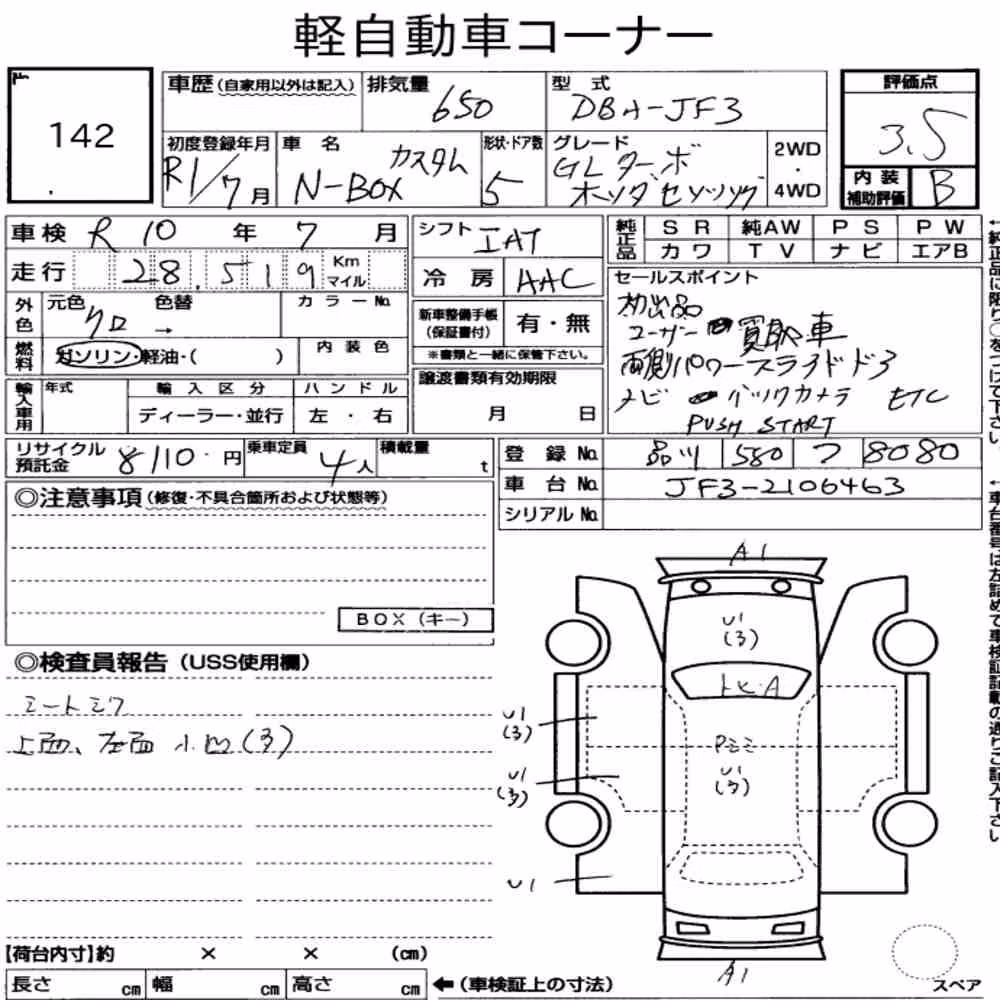 軽自動車コーナー
142
車歴(自家用以外は記入)
排気量
650
型式
DBA-JF3
評価点
3.5
初度登録年月
R1/7月
車名
N-BOX カスタム
形状・ドア数
5
グレード
GLターボ
ホンダセンシング
2WD
・
4WD
内装
補助評価
B
車検 R 10 年 7 月
走行 28,519 Km マイル
シフト IAT
冷房 AAC
純正品
SR 純AW PS PW
カワ TV ナビ エアB
外色
元色 クロ
色替 →
カラーNo.
燃料
ガソリン・軽油・( )
内装色
新車整備手帳
(保証書付)
有・無
※書類と一緒に保管下さい。
セールスポイント
初出品
ユーザー買取車
両側パワースライドドア
ナビ バックカメラ ETC
PUSH START
輸入車用
年式
輸入区分
ディーラー・並行
ハンドル
左・右
譲渡書類有効期限
月 日
リサイクル
預託金
8110円
乗車定員
4人
積載量
t
登録No. 品川 580 フ 8080
車台No. JF3-2106463
シリアルNo.
◎注意事項(修復・不具合箇所および状態等)
BOX(キー)
◎検査員報告(USS使用欄)
シートシワ
上面、左面 小凹(ろ)
A1
U1
(ろ)
トヒ・A
U1
(ろ)
Pミミ
U1
(ろ)
U1
(ろ)
U1
A1
【荷台内寸】約 × × (cm)
長さ cm 幅 cm 高さ cm
←(車検証上の寸法)
スペア